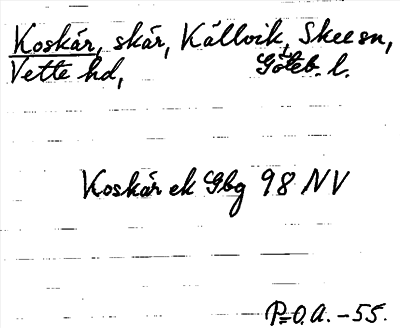 Koskär, skär, Källvik, Skee sn,
Vette hd, Göteb. l.
Koskär ek Gbg 98 NV
P.O.A. -55.